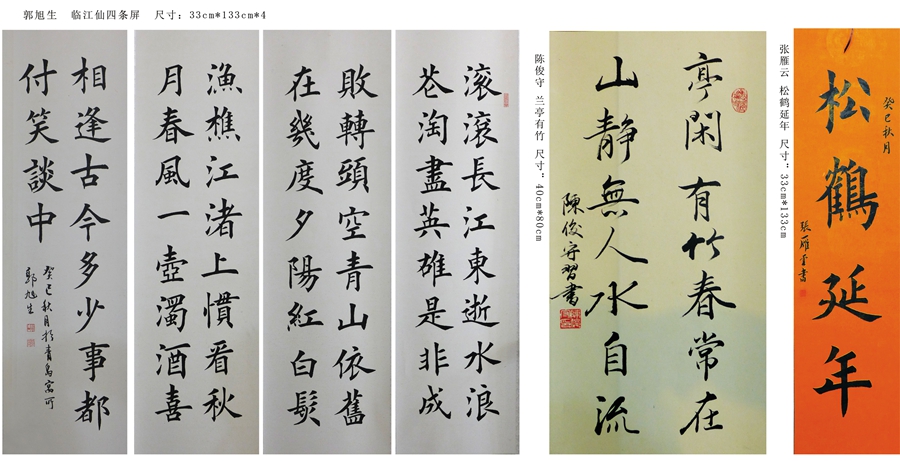 郭旭生 临江仙四条屏 尺寸：33cm*133cm*4
滚滚長江東逝水浪
花淘盡英雄是非成
敗轉頭空青山依舊
在幾度夕陽紅白髮
漁樵江渚上慣看秋
月春風一壺濁酒喜
相逢古今多少事都
付笑談中
癸巳秋月於青島寓所
郭旭生
陈俊守 兰亭有竹 尺寸：40cm*80cm
亭閑有竹春常在
山静無人水自流
陳俊守習書
张雁云 松鹤延年 尺寸：33cm*133cm
癸巳秋月
松鶴延年
張雁雲書